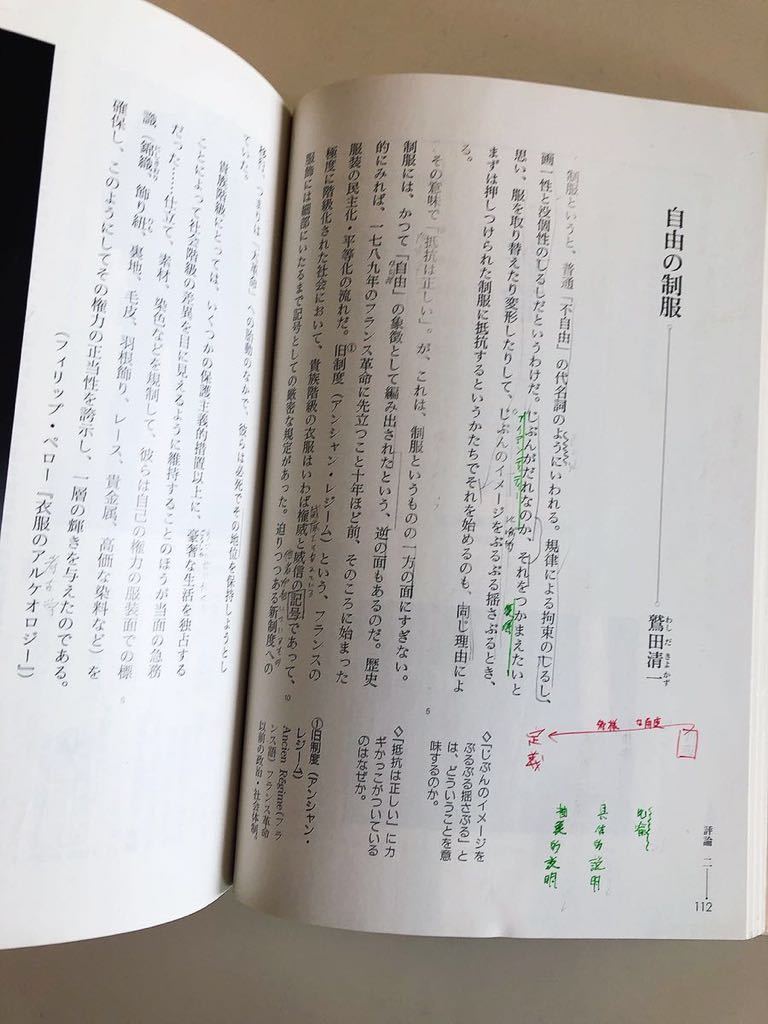 自由の制服
鷲田清一
わしだきよかず
制服というと、普通「不自由」の代名詞のようにいわれる。規律による拘束のしるし、
画一性と没個性のしるしだというわけだ。じぶんがだれなのか、それをつかまえたいと
思い、服を取り替えたり変形したりして、じぶんのイメージをぶるぶる揺さぶるとき、
まずは押しつけられた制服に抵抗するというかたちでそれを始めるのも、同じ理由によ
る。
その意味で「抵抗は正しい」。が、これは、制服というものの一方の面にすぎない。
制服には、かつて「自由」の象徴として編み出されたという、逆の面もあるのだ。歴史
的にみれば、一七八九年のフランス革命に先立つこと十年ほど前、そのころに始まった
服装の民主化・平等化の流れだ。旧制度（アンシャン・レジーム）という、フランスの
①
極度に階級化された社会において、貴族階級の衣服はいわば権威と威信の記号であって、
服飾には細部にいたるまで記号としての厳密な規定があった。迫りつつある新制度への
5
10
◇「じぶんのイメージを
ぶるぶる揺さぶる」と
は、どういうことを意
味するのか。
◇「抵抗は正しい」にカ
ギかっこがついている
のはなぜか。
①旧制度（アンシャン・
レジーム）
Ancien Régime（フラ
ンス語）フランス革命
以前の政治・社会体制。
評論 二
112
定義
アイデンティティー
具体的説明
抽象的説明
「大革命」への胎動のなかで、彼らは必死でその地位を保持しようとし
ていた。
貴族階級にとっては、いくつかの保護主義的措置以上に、豪奢な生活を独占する
ことによって社会階級の差異を目に見えるように維持することのほうが当面の急務
だった……仕立て、素材、染色などを規制して、彼らは自己の権力の服装面での標
識（錦織、飾り紐、裏地、毛皮、羽根飾り、レース、貴金属、高価な染料など）を
確保し、このようにしてその権力の正当性を誇示し、一層の輝きを与えたのである。
（フィリップ・ペロー『衣服のアルケオロジー』）
考古学
5